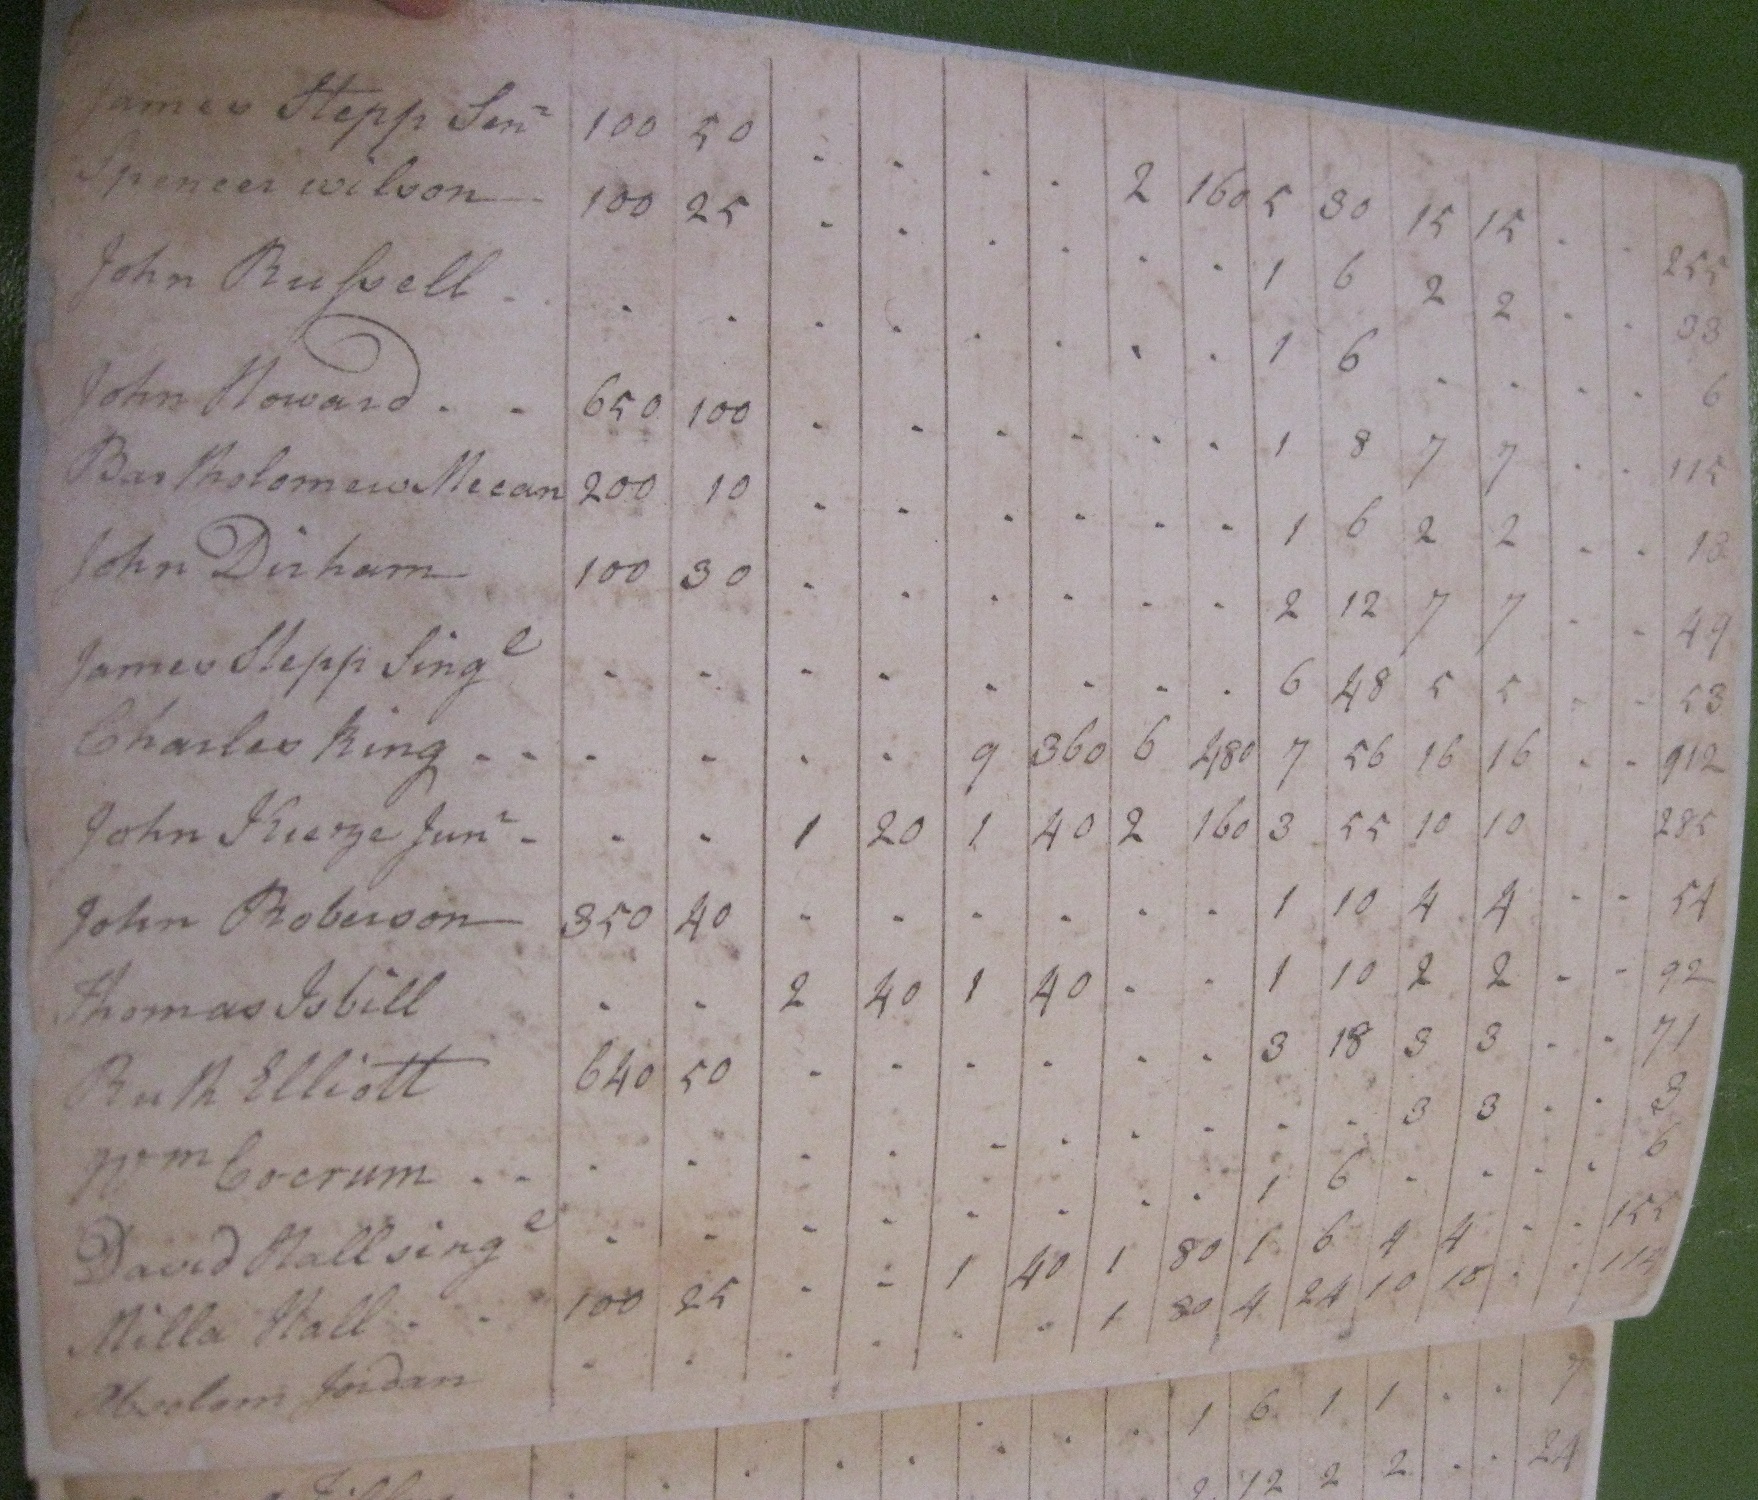 James Stepp Senr 100 50 . . . . 2 160 5 30 15 15 . . 255
Spencer wilson 100 25 . . . . . . 1 6 2 2 . . 33
John Russell . . . . . . . . 1 6 . . . . 6
John Howard . - 650 100 . . . . . . 1 8 7 7 . . 115
Bartholomew Meean 200 10 . . . . . . 1 6 2 2 . . 18
John Dirham 100 30 . . . . . . 2 12 7 7 . . 49
James Stepp Singe . . . . . . . . 6 48 5 5 . . 53
Charles King - - . . . . 9 360 6 480 7 56 16 16 . . 912
John Kierze Junr - . . 1 20 1 40 2 160 3 55 10 10 285
John Roberson 350 40 . . . . . . 1 10 4 4 . . 54
Thomas Isbill . . 2 40 1 40 . . 1 10 2 2 . . 92
Ruth Elliott 640 50 . . . . . . 3 18 3 3 . . 71
Wm Cocrum . . . . . . . . . . . . 3 3 . . 3
David Hall singe . . . . . . . . 1 6 . . . . 6
Milla Hall . . 100 25 . . 1 40 1 80 1 6 4 4 . . 155
Absolom Jordan . . . . . . 1 80 4 24 10 10 . . 114
. . . . . . 1 6 1 1 . . 7
2 12 2 2 . . 24